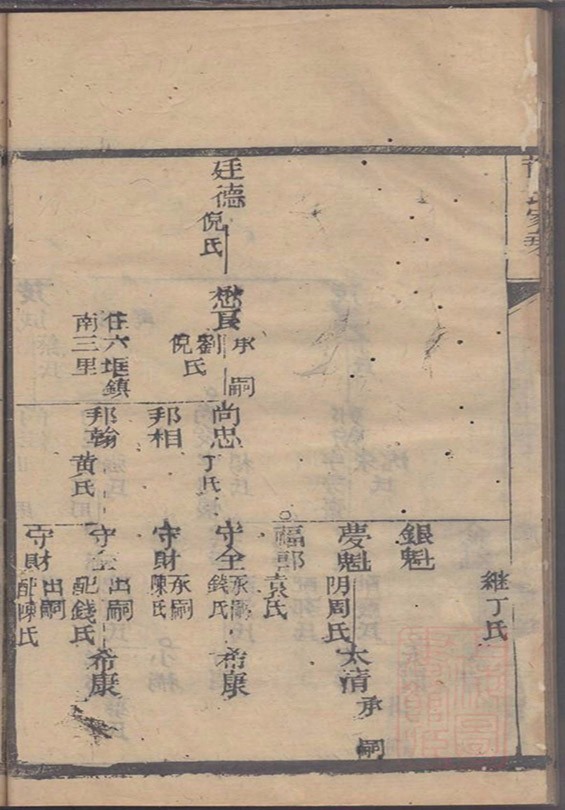 廷德
倪氏
懋良
承嗣
劉
倪氏
住六垤鎮
南三里
尚忠
丁氏
邦相
邦翰
黃氏
繼丁氏
銀魁
夢魁
阴周氏
太清
承嗣
福郭
袁氏
守全
承嗣
錢氏
希康
守財
承嗣
陳氏
守全
出嗣
配錢氏
希康
守財
出嗣
配陳氏